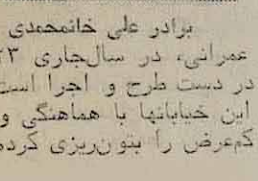 برادر علی خانمحمدی
عمرانی، در سال‌جاری ۲۳
در دست طرح و اجرا است
این خیابانها با هماهنگی و
کم‌عرض را بتون‌ریزی کرده